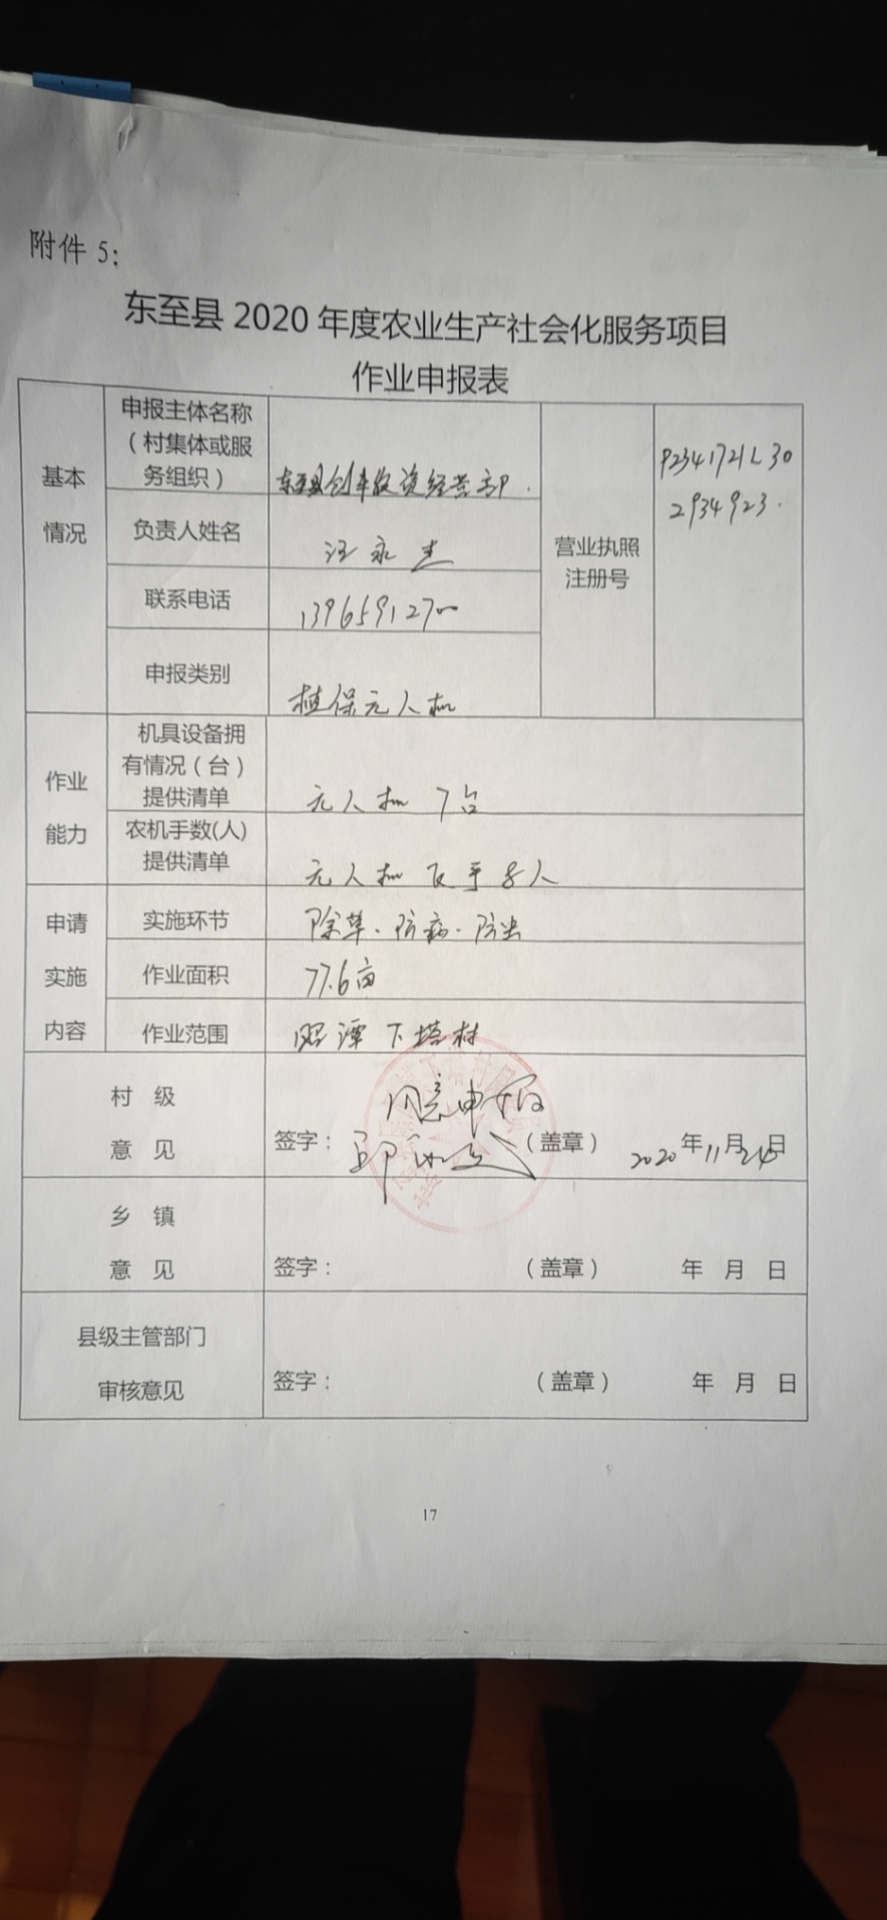 附件 5：
东至县 2020 年度农业生产社会化服务项目
作业申报表
基本
情况
申报主体名称
（村集体或服
务组织）
东至县创丰农资经营部
负责人姓名
汪永
联系电话
13965912700
申报类别
植保无人机
营业执照
注册号
P2341721L30
2934923
作业
能力
机具设备拥
有情况（台）
提供清单
无人机 7台
农机手数(人)
提供清单
无人机飞手8人
申请
实施
内容
实施环节
除草、防病、防虫
作业面积
77.6亩
作业范围
昭潭下塔村
村 级
意 见
同意申报
签字： （盖章） 2020年11月 日
乡 镇
意 见
签字： （盖章） 年 月 日
县级主管部门
审核意见
签字： （盖章） 年 月 日
17